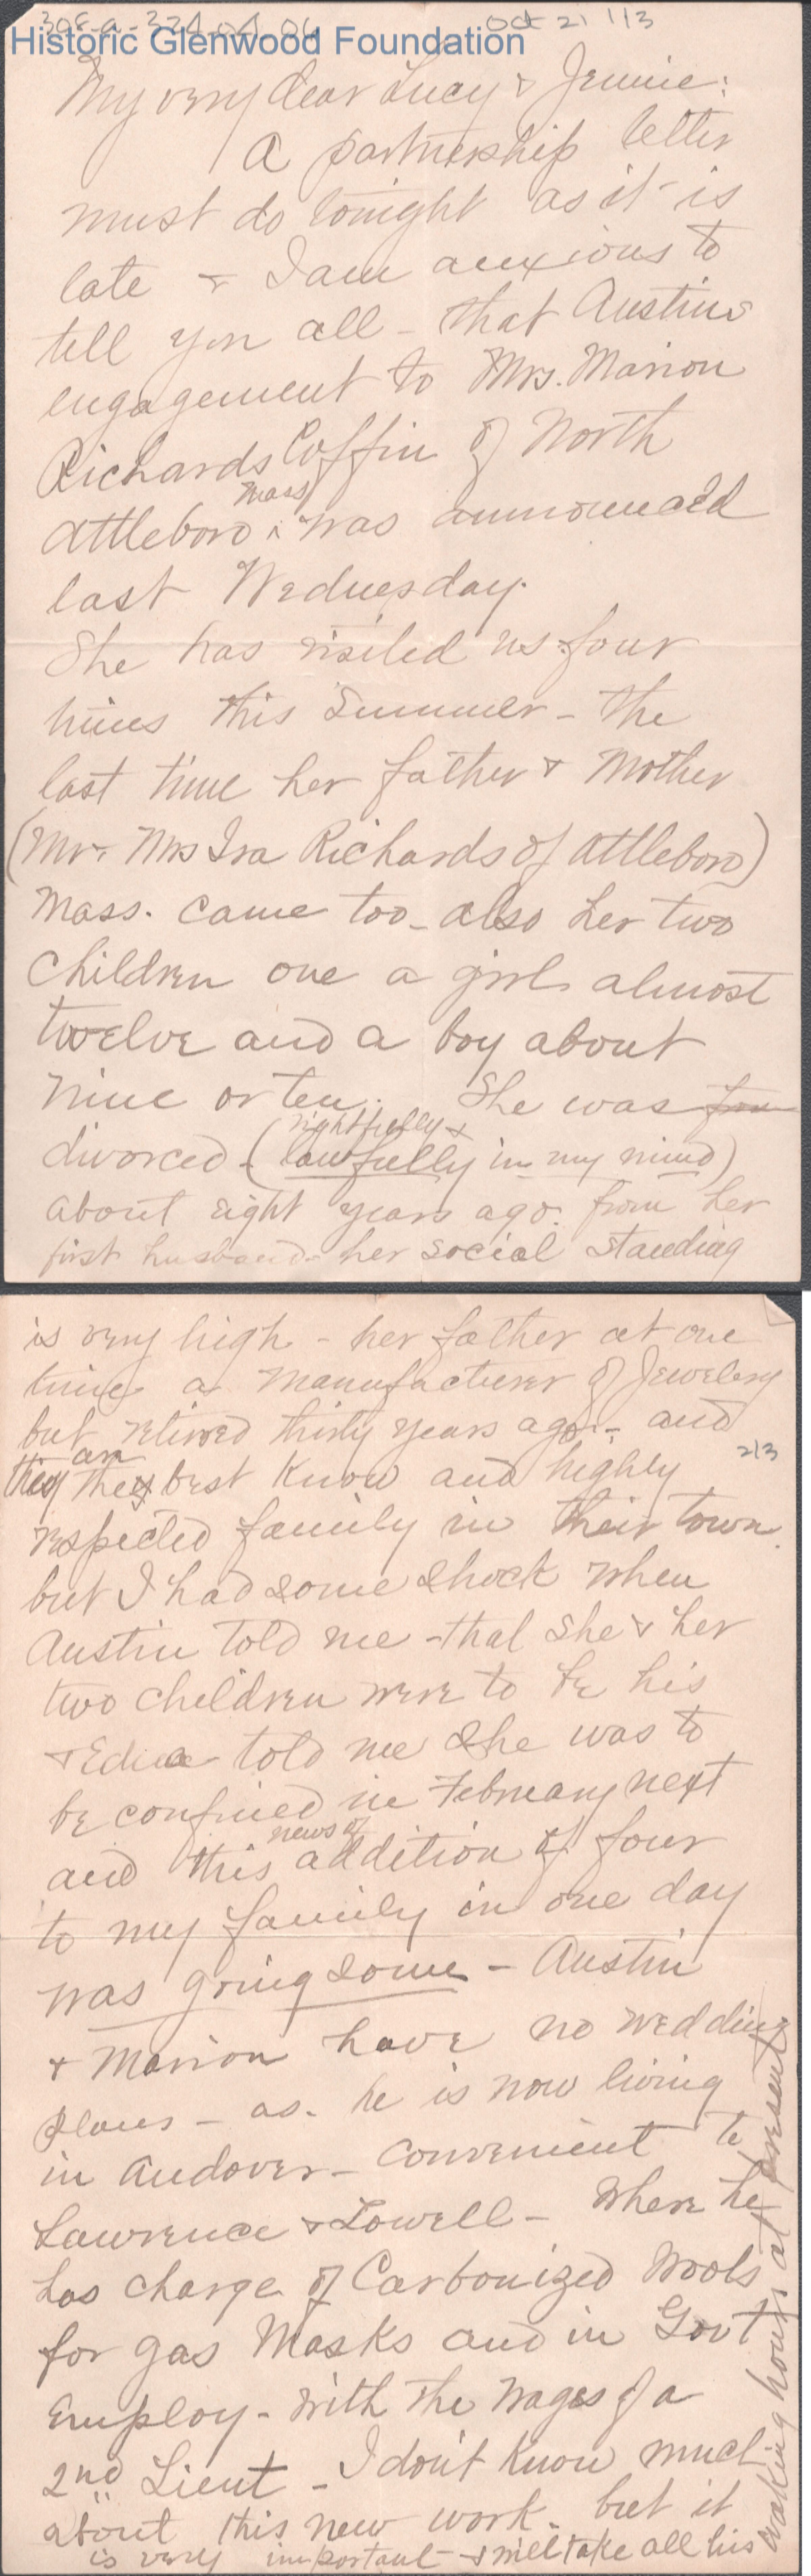 308-a-334.04.06 Oct 21 1/3
Historic Glenwood Foundation
My very dear Lucy & Jennie:
A partnership letter
must do tonight as it is
late & I am anxious to
tell you all - that Austins
engagement to Mrs. Marion
Richards Coffin of North
Attleboro ^ Mass was announced
last Wednesday.
She has visited us four
times this Summer - the
last time her father & Mother
(Mr. Mrs Ira Richards of Attleboro)
Mass. came too - also her two
children one a girl almost
twelve and a boy about
nine or ten. She was
divorced - (rightfully & lawfully in my mind)
about eight years ago. from her
first husband - her social standing
is very high - her father at one
time a manufacturer of Jewelery
but retired thirty years ago - and
2/3
they are the best know and highly
respected family in their town.
but I had some shock when
Austin told me - that she & her
two children were to be his
& Edna told me she was to
be confined in February next
and this news of addition of four
to my family in one day
was going some - Austin
& Marion have no wedding
plans - as he is now living
in Andover - convenient to
Lawrence & Lowell - where he
has charge of Carbonized Wools
for gas Masks and in Govt
Employ - with the wages of a
2nd Lieut - I don't know much
about this new work - but it
is very important & will take all his
waking hours at present